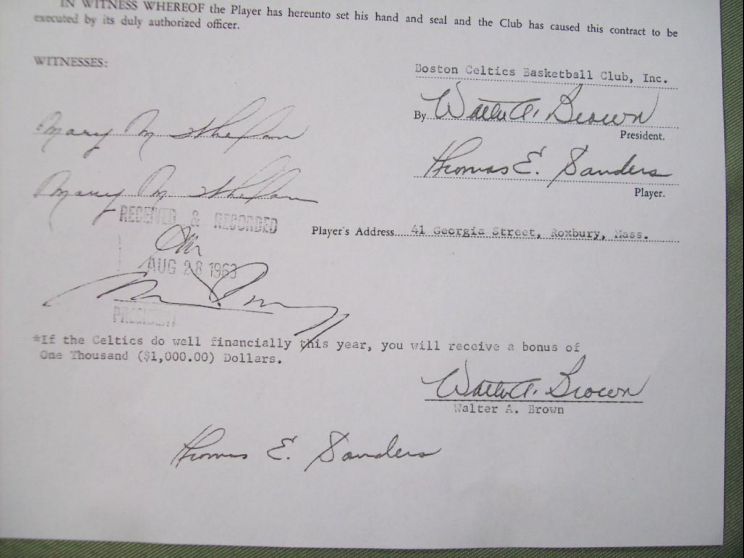 IN WITNESS WHEREOF the Player has hereunto set his hand and seal and the Club has caused this contract to be
executed by its duly authorized officer.
WITNESSES:
Boston Celtics Basketball Club, Inc.
By Walter A. Brown
President.
Mary M. Whelan
Thomas E. Sanders
Player.
Mary M. Whelan
RECEIVED & RECORDED
Player's Address 41 Georgia Street, Roxbury, Mass.
AUG 28 1963
PRESIDENT
*If the Celtics do well financially this year, you will receive a bonus of
One Thousand ($1,000.00) Dollars.
Walter A. Brown
Walter A. Brown
Thomas E. Sanders